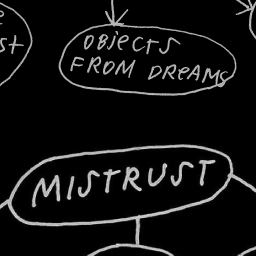 OBJECTS
FROM DREAMS
MISTRUST